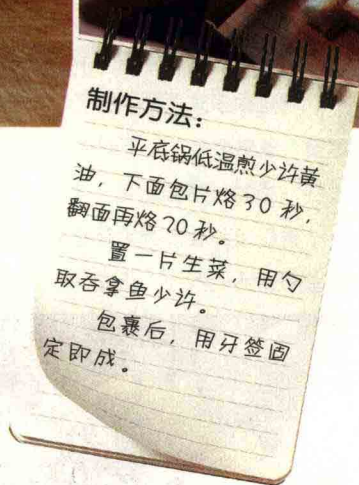 制作方法：
平底锅低温煎少许黄
油，下面包片烙30秒，
翻面再烙20秒。
置一片生菜，用勺
取吞拿鱼少许。
包裹后，用牙签固
定即成。